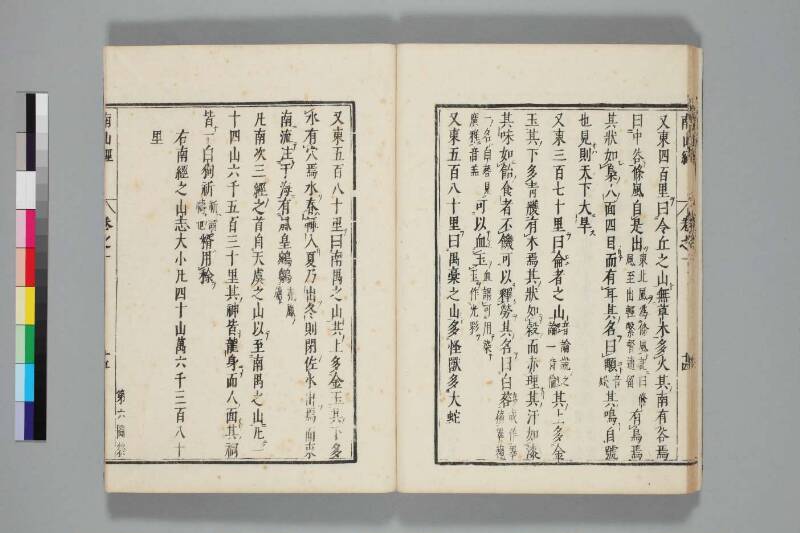 又東四百里曰令丘之山無草木多火其南有谷焉
曰中谷條風自是出東北風爲條風記曰條風至出輕繫督逋留有鳥焉
其狀如梟人面四目而有耳其名曰顒音娛其鳴自號
也見則天下大旱
又東三百七十里曰侖者之山音論說之論一音倫其上多金
玉其下多青雘有木焉其狀如穀而赤理其汗如漆
其味如飴食者不饑可以釋勞其名曰白䓘或作睪蘇睪蘇
一名白䓘見廣雅音羔可以血玉血謂可用染玉作光彩
又東五百八十里曰禺稾之山多怪獸多大蛇
南山經
卷之一
又東五百八十里曰南禺之山其上多金玉其下多
水有穴焉水春輒入夏乃出冬則閉佐水出焉而東
南流注于海有鳳皇鵷鶵亦鳳屬
凡南次三經之首自天虞之山以至南禺之山凡一
十四山六千五百三十里其神皆龍身而人面其祠
皆一白狗祈祈請禱也糈用稌
右南經之山志大小凡四十山萬六千三百八十
里
南山經
卷之一